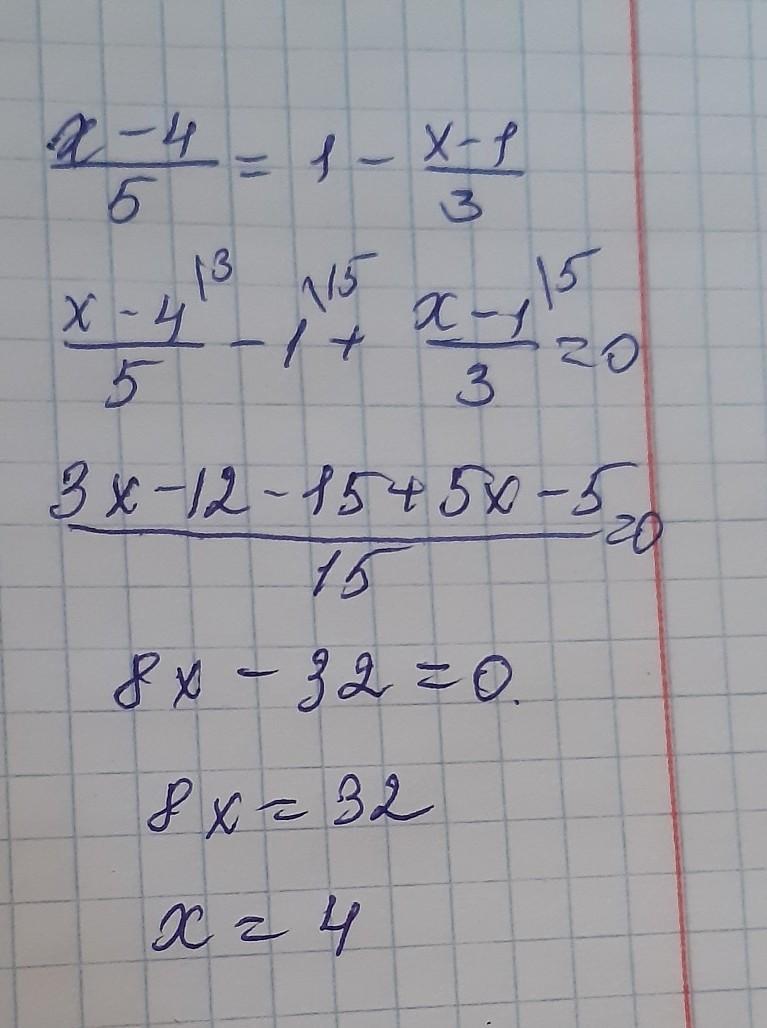 x-4/5 = 1 - x-1/3
x-4\3/5 - 1\15 + x-1\5/3 = 0
3x-12-15+5x-5/15 = 0
8x - 32 = 0.
8x = 32
x = 4